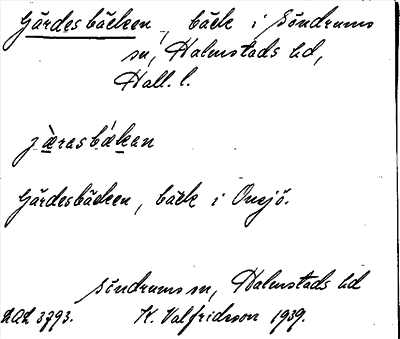 Gärdesbäcken, bäck i Söndrums
sn, Halmstads hd,
Hall. l.
jæ̀rasbǽkan
Gärdesbäcken, bäck i Onsjö.
Söndrums sn, Halmstads hd
LAL 3793. K. Valfridsson 1939.